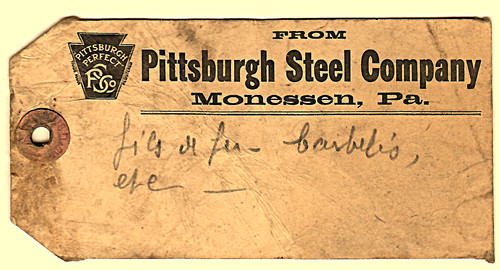 PITTSBURGH
PERFECT
PSCo
FROM
Pittsburgh Steel Company
Monessen, Pa.
fils de fer barbelés,
etc —